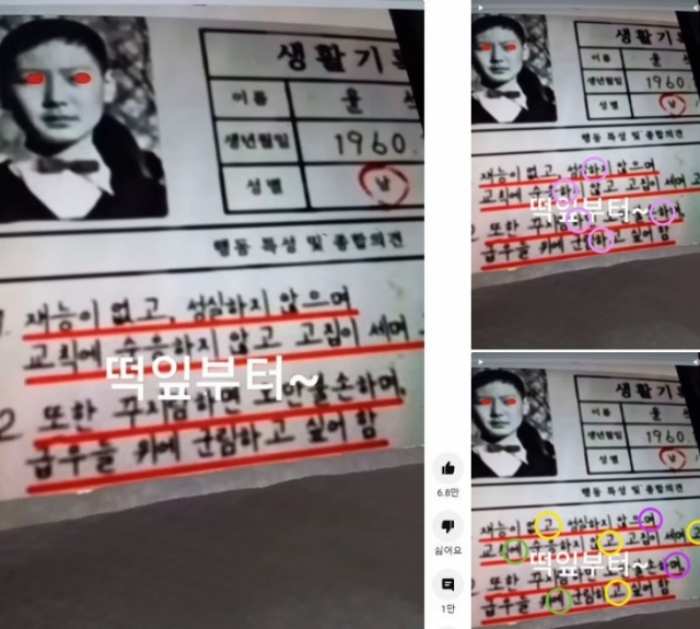 생활기록
이름
윤 석
생년월일
1960.
성별
남
행동 특성 및 종합의견
1. 재능이 없고, 성실하지 않으며
교칙에 순응하지 않고 고집이 세며
떡잎부터~
2 또한 꾸지람하면 도안불손하며,
급우들 위에 군림하고 싶어 함
6.8만
싫어요
1만
생활기록
이름
윤 석
생년월일
1960
성별
남
행동 특성 및 종합의견
재능이 없고, 성실하지 않으며
교칙에 순응하지 않고 고집이 세며 고
떡잎부터~
2 또한
급우들 위에 군림하고 싶어 함
생활기록
이름
윤
생년월일
1960
성별
남
행동 특성 및 종합의견
재능이 없고, 성실하지 않으며
교칙에 순응하지 않고 고집이 세며 고
떡잎부터~
2 또한
급우들 위에 군림하고 싶어 함